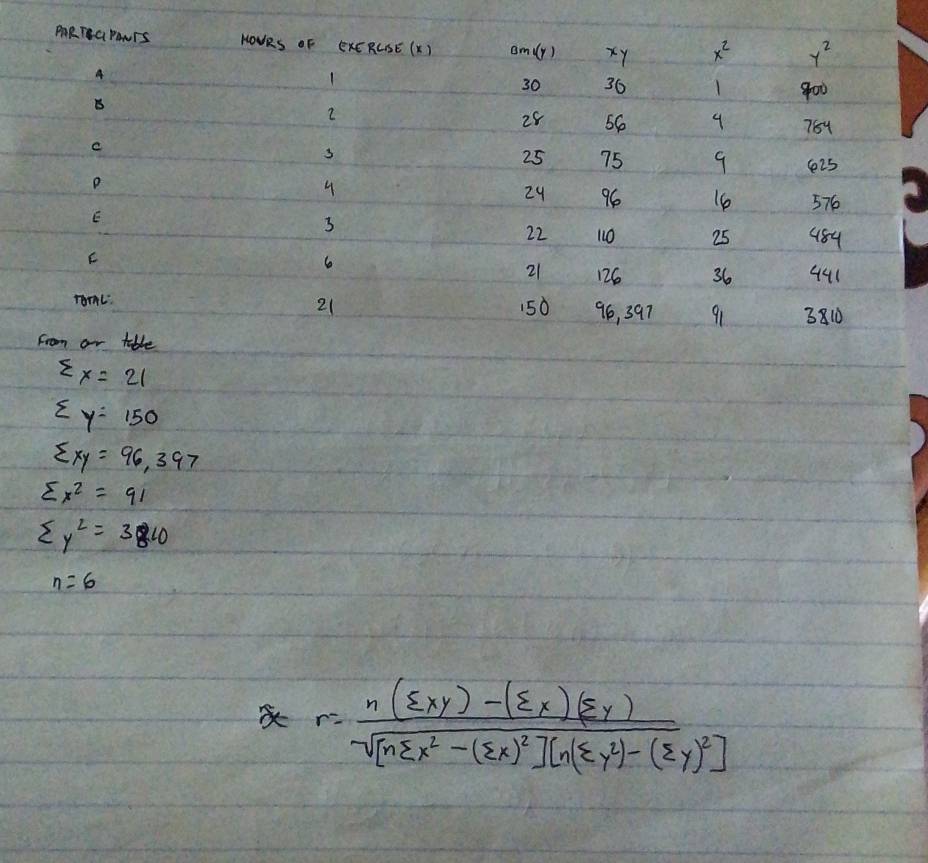 PARTICIPANTS HOURS OF EXERCISE (X) BMI(Y) xy x² y²
A 1 30 30 1 900
B 2 28 56 4 784
C 3 25 75 9 625
D 4 24 96 16 576
E 5 22 110 25 484
F 6 21 126 36 441
TOTAL: 21 150 96,397 91 3810
From our table
Σx = 21
Σy = 150
Σxy = 96,397
Σx² = 91
Σy² = 3810
n=6
r = n(Σxy) - (Σx)(Σy) / √[nΣx² - (Σx)²][n(Σy²) - (Σy)²]